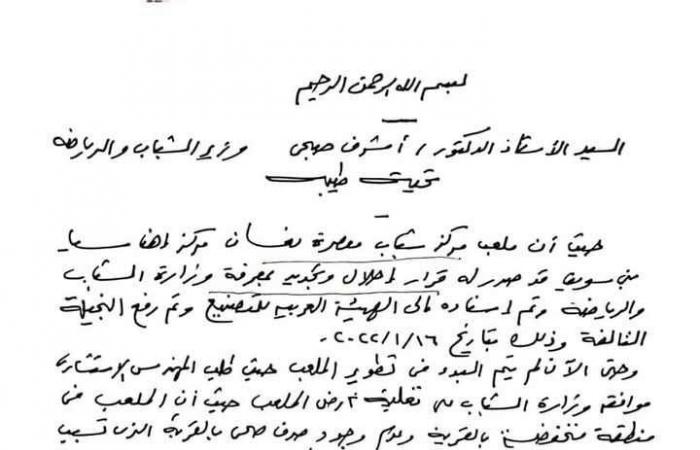 بسم الله الرحمن الرحيم
السيد الأستاذ الدكتور / أشرف صبحى وزير الشباب والرياضه
تحيه طيبه
حيث أن ملعب مركز شباب معصرة نعسان مركز اهناسيا
بنى سويف قد صدر له قرار إحلال وتجديد بمعرفة وزارة الشباب
والرياضة وتم إسناده الى الهيئة العربيه للتصنيع وتم رفع النجيلة
التالفة وذلك بتاريخ ٢٠٢٢/١/١٦.
وحتى الآن لم يتم البدء فى تطوير الملعب حيث طلب المهندس الاستشارى
موافقه وزارة الشباب على تعلية أرض الملعب حيث أن الملعب فى
منطقة منخفضة بالقرية وعدم وجود صرف صحى بالقرية الذى تسبب